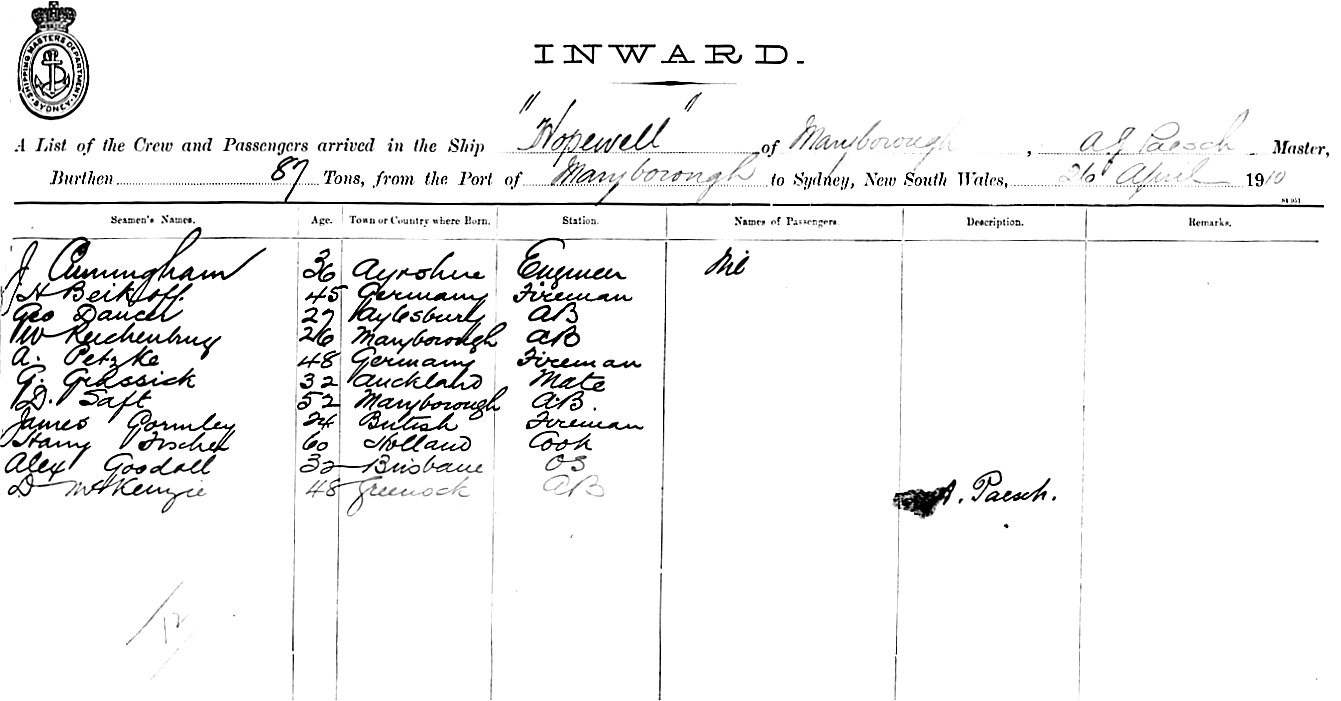 SHIPPING MASTERS DEPARTMENT SYDNEY
INWARD.
A List of the Crew and Passengers arrived in the Ship "Hopewell" of Maryborough, A J Paesch Master,
Burthen 87 Tons, from the Port of Maryborough to Sydney, New South Wales, 26 April 1910
Seamen's Names. Age. Town or Country where Born. Station. Names of Passengers. Description. Remarks.
J Cunningham 36 Ayrshire Engineer Nil
H Beikoff 45 Germany Fireman
Geo Dancer 27 Aylesbury AB
W Reichenbug 26 Maryborough AB
A. Petzke 48 Germany Fireman
G. Grassick 32 Auckland Mate
D. Saft 52 Maryborough A.B.
James Gormley 24 British Fireman
Harry Fischer 60 Holland Cook
Alex Goodall 32 Brisbane OS
D McKenzie 48 Greenock AB
A. Paesch.
12